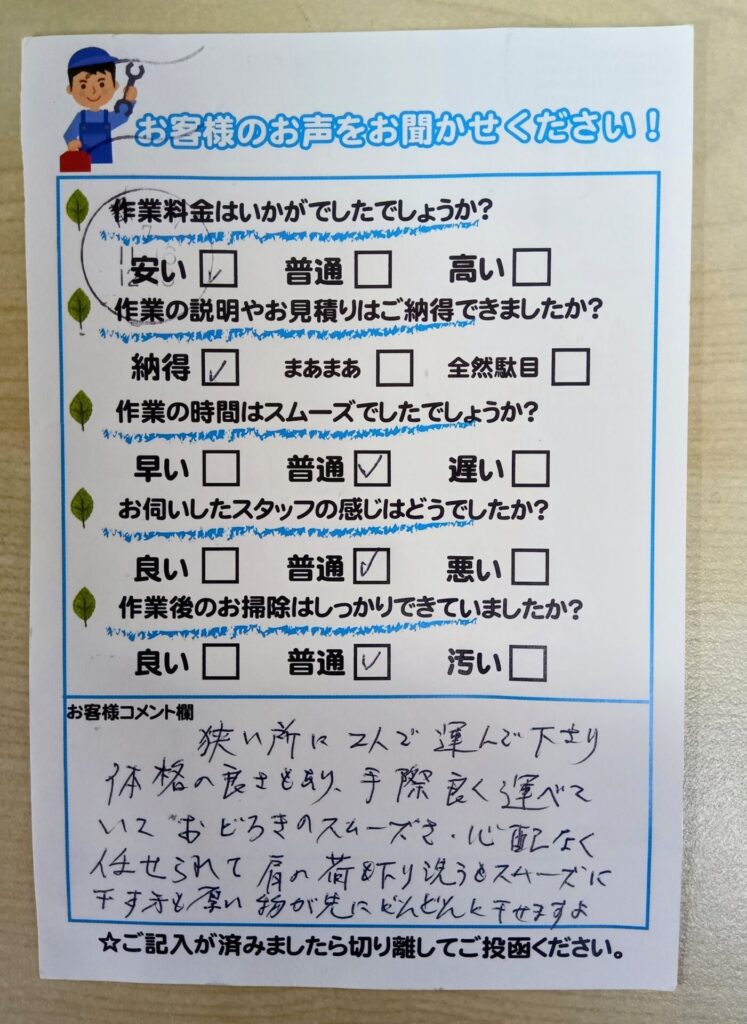 お客様のお声をお聞かせください！
作業料金はいかがでしたでしょうか？
安い 普通 高い
作業の説明やお見積りはご納得できましたか？
納得 まあまあ 全然駄目
作業の時間はスムーズでしたでしょうか？
早い 普通 遅い
お伺いしたスタッフの感じはどうでしたか？
良い 普通 悪い
作業後のお掃除はしっかりできていましたか？
良い 普通 汚い
お客様コメント欄
狭い所に2人で運んで下さり
体格の良さもあり、手際良く運べて
いて おどろきのスムーズさ・心配なく
任せられて肩の荷も下り洗うもスムーズに
干す手も厚い物が先にどんどんと干せますよ
☆ご記入が済みましたら切り離してご投函ください。